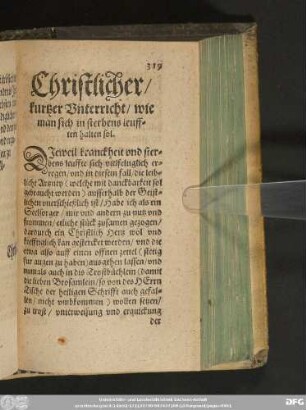 319
Christlicher/
kurtzer Vnterricht/ wie
man sich in sterbens leuff-
ten halten sol.
DJeweil kranckheit vnd ster-
bens leuffte sich vielfeinglich er-
regen/ vnd in diesem fall/ die leib-
liche Artzney (welche mit danckbarkeit sol
gebraucht werden) ausserhalb der Geist-
lichen vnerschießlich ist/ Habe ich als ein
Seelsorger/ mir vnd andern zu nutz vnd
frommen/ etliche stück zusamen gezogen/
dardurch ein Christlich Hertz wol vnd
krefftiglich kan gestercket werden/ vnd die
etwa also auff einen offnen zettel (stetig
für augen zu haben) aus gehen lassen/ vnd
nunmals auch in die Trostbüchlein (damit
die lieben Brosamlein/ so von des HErrn
Tische der heiligen Schrifft auch gefal-
len/ nicht vmbkommen) wollen setzen/
zu trost/ vnterweisung vnd erquickung
der
DFG